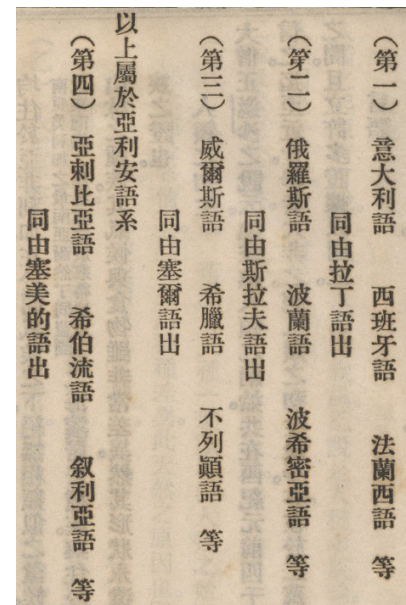 （第一）　意大利語　西班牙語　法蘭西語　等
同由拉丁語出
（第二）　俄羅斯語　波蘭語　波希密亞語　等
同由斯拉夫語出
（第三）　威爾斯語　希臘語　不列顚語　等
同由塞爾語出
以上屬於亞利安語系
（第四）　亞剌比亞語　希伯流語　叙利亞語　等
同由塞美的語出